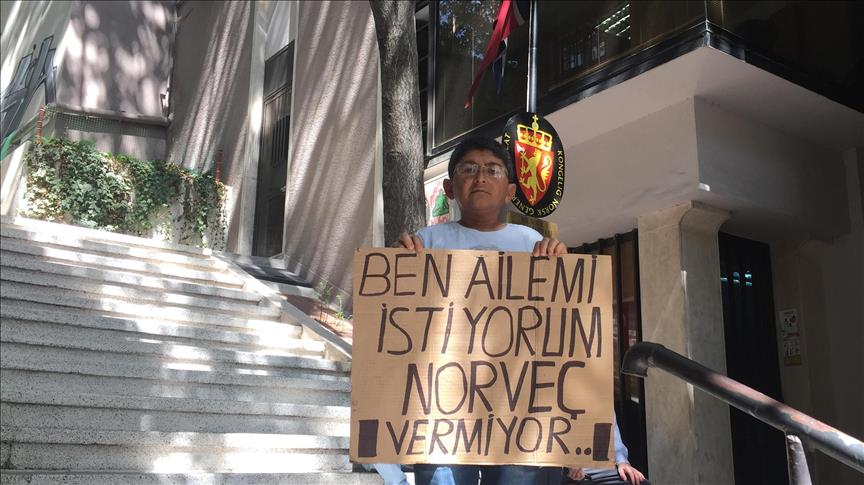 BEN AİLEMİ
İSTİYORUM
NORVEÇ
VERMİYOR..
KONGELIG NORSK GENER